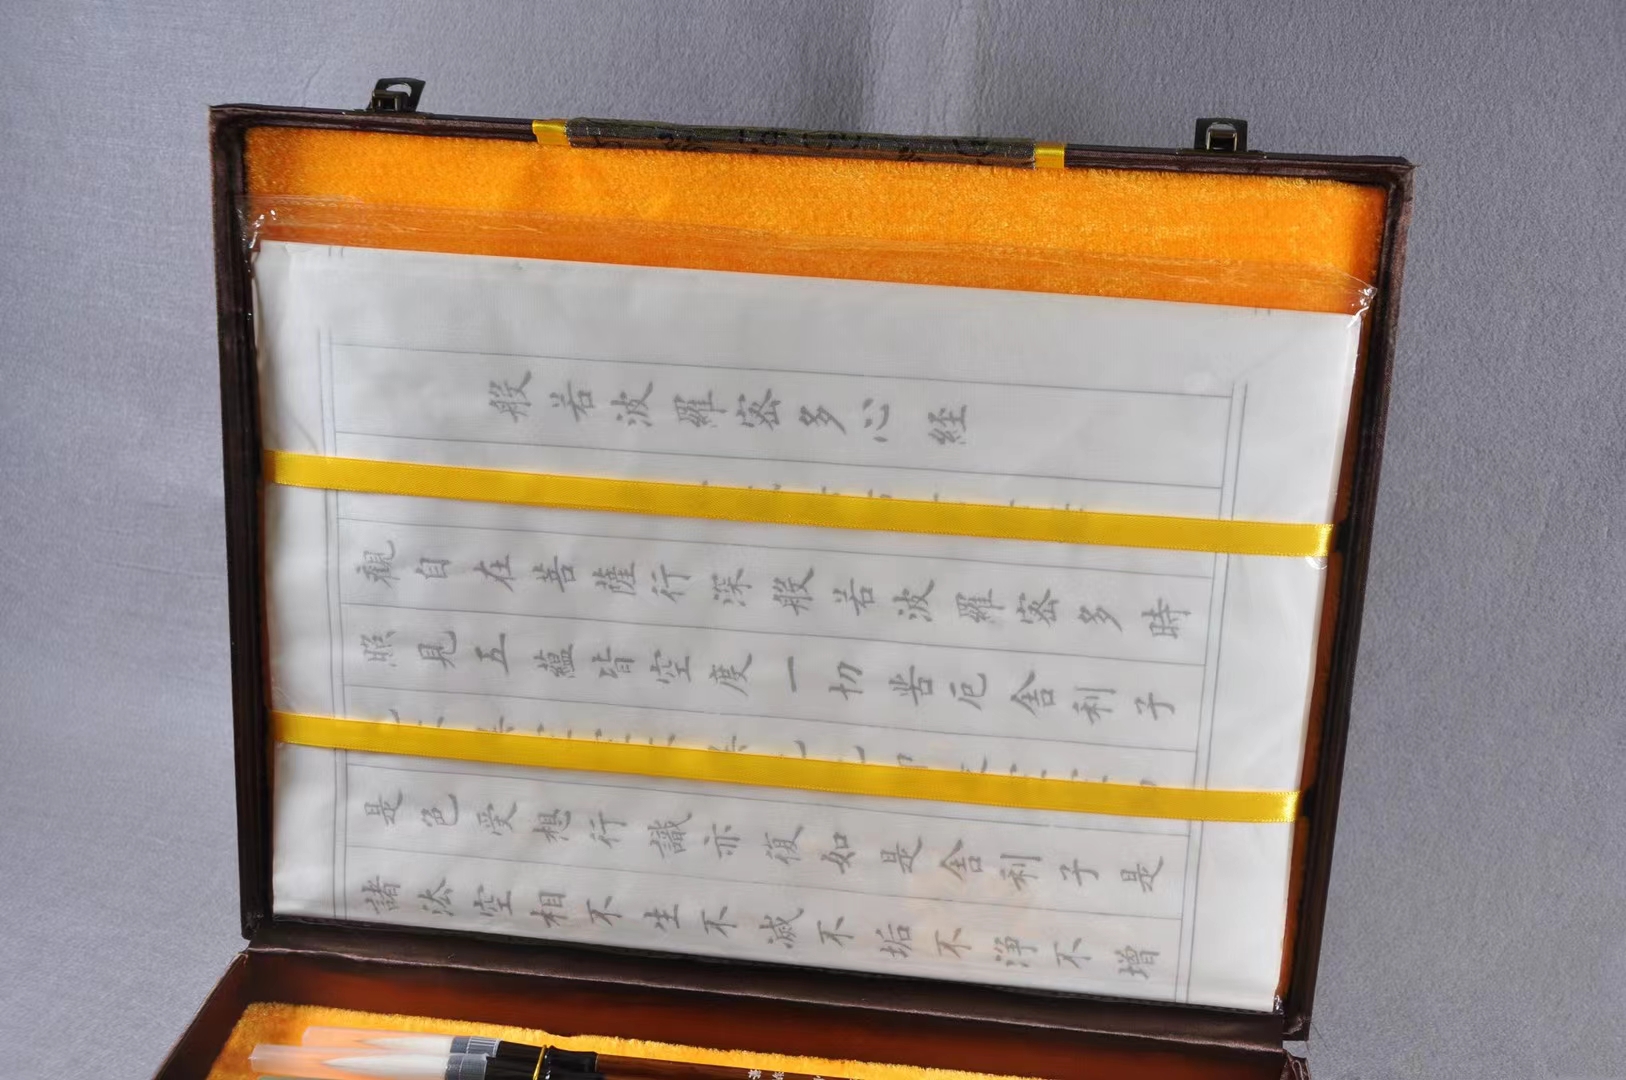 般若波羅密多心経
觀自在菩薩行深般若波羅密多時
照見五蘊皆空度一切苦厄舍利子
是色受想行識亦復如是舍利子是
諸法空相不生不滅不垢不淨不增